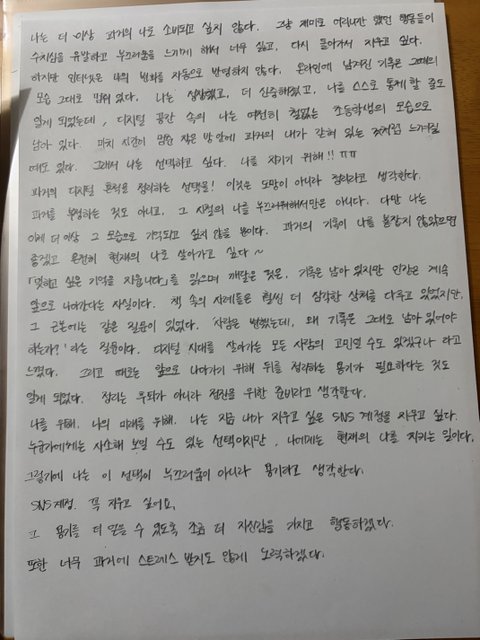 나는 더 이상 과거의 나로 소비되고 싶지 않다. 그냥 재미로 여러나만 했던 행동들이
수치심을 유발하고 부끄러움을 느끼게 해서 너무 싫고, 다시 돌아가서 지우고 싶다.
하지만 인터넷은 나의 변화를 자동으로 반영하지 않다. 온라인에 남겨진 기록은 그때의
모습 그대로 멈춰 있다. 나는 성장했고, 더 신중해졌고, 나를 스스로 통제할 줄도
알게 되었는데, 디지털 공간 속의 나는 여전히 철없는 초등학생의 모습으로
남아 있다. 마치 시간이 멈춘 작은 방 안에 과거의 내가 갇혀 있는 것처럼 느껴질
때도 있다. 그래서 나는 선택하고 싶다. 나를 지키기 위해!! ㅠㅠ
과거의 디지털 흔적을 정리하는 선택을! 이것은 도망이 아니라 정리라고 생각한다.
과거를 부정하는 것도 아니고, 그 시절의 나를 부끄러워해서만은 아니다. 다만 나는
이제 더 이상 그 모습으로 기억되고 싶지 않을 뿐이다. 과거의 기록이 나를 붙잡지 않았으면
좋겠고 온전히 현재의 나로 살아가고 싶다~
「잊히고 싶은 기억을 지웁니다」를 읽으며 깨달은 것은, 기록은 남아 있지만 인간은 계속
앞으로 나아간다는 사실이다. 책 속의 사례들은 훨씬 더 심각한 상처를 다루고 있었지만,
그 근본에는 같은 질문이 있었다. '사람은 변했는데, 왜 기록은 그대로 남아 있어야
하는가?' 라는 질문이다. 디지털 시대를 살아가는 모든 사람의 고민일 수도 있겠구나 라고
느꼈다. 그리고 때로는 앞으로 나아가기 위해 뒤를 정리하는 용기가 필요하다는 것도
알게 되었다. 정리는 후퇴가 아니라 전진을 위한 준비라고 생각한다.
나를 위해, 나의 미래를 위해, 나는 지금 내가 지우고 싶은 SNS 계정을 지우고 싶다.
누군가에게는 사소해 보일 수도 있는 선택이지만, 나에게는 현재의 나를 지키는 일이다.
그렇기에 나는 이 선택이 부끄러움이 아니라 용기라고 생각한다.
SNS계정. 꼭 지우고 싶어요.
그 용기를 더 얻을 수 있도록 조금 더 자신감을 가지고 행동하겠다.
또한 너무 과거에 스트레스 받지도 않게 노력하겠다.